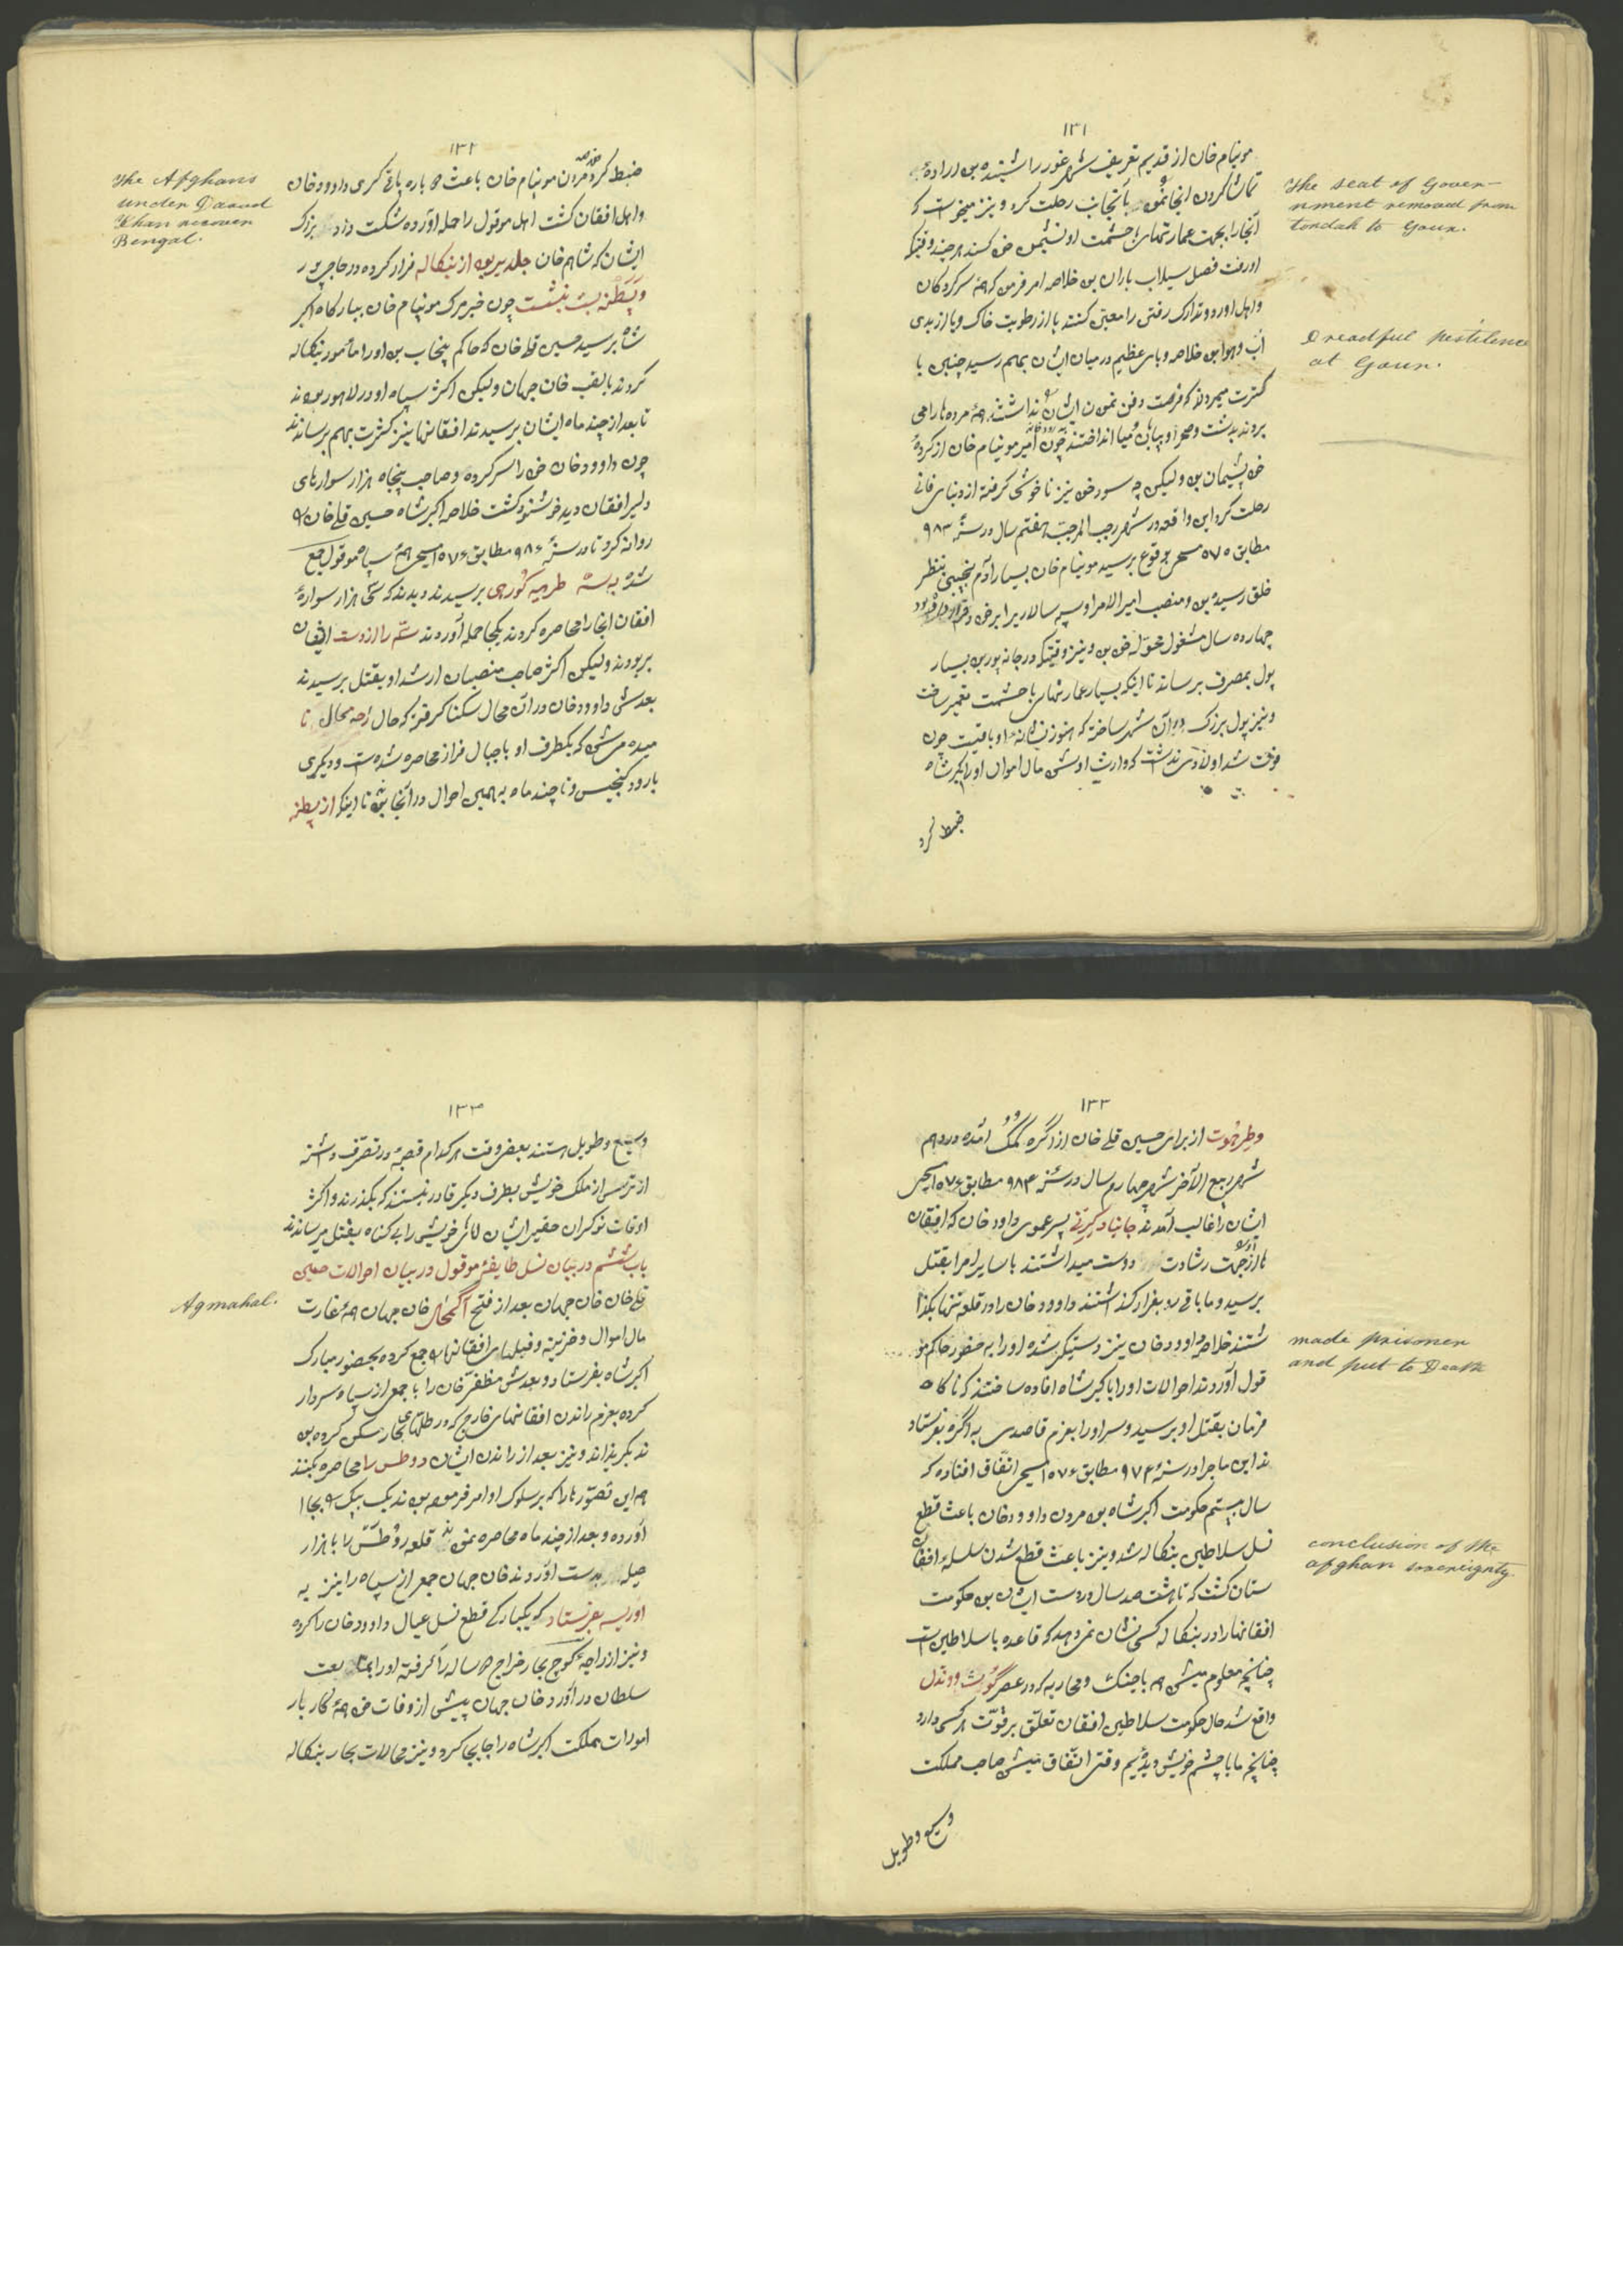 ۱۳۱
مونیام خان از قدیم تعریف شهر غور را شنیده بود اراده
تماشا کردن انجا نموده بآنجانب رحلت کرد و نیز میخواست که
آنجا را بجهت عمارتهای با حشمت او نشیمن خود کند هر چند وقتیکه
او رفت فصل سیلاب باران بود خلاصه امر فرمود که همۀ سرکردگان
و اهل اوردو تدارک رفتن را معین کنند یا از رطوبت خاک و یا از بدی
آب و هوا بود خلاصه وبای عظیم در میان ایشان بهم رسید چنین با
کثرت میمردند که فرصت دفن نمودن ایشان نداشتند همۀ مرده ها را می
بردند بدشت و صحرا و بیابان و میا انداختند چون امیر مونیام خان از کردۀ
خود پشیمان بود ولیکن چه سود خود نیز ناخوشی گرفته از دنیای فانی
رحلت کرد این واقعه در شهر رجب المرجب هفتم سال در سنۀ ۹۸۳
مطابق ۱۵۷۵ مسیحی بوقوع برسید مونیام خان بسیار آدم نجیبی بنظر
خلق رسیده بود و منصب امیر الامرا و سپه سالار بر ابر خود قرار داده بود
چهارده سال مشغول خود بود و نیز وقتیکه در جانه پور بود بسیار
پول بمصرف برساند تا اینکه بسیار عمارتهای با حشمت تعمیر ساخت
و نیز پول بزرگ در آن شهر ساخته که هنوز نشانۀ او باقیست چون
فوت شد اولادی نداشت که وارث او شود مال اموال او را اکبر شاه
ضبط کرد
The seat of Gover-
nment removed from
tondah to Gour.
Dreadful pestilence
at Gour.
۱۳۲
ضبط کرد مردن مونیام خان باعث دوباره یاغی گری داوود خان
و اهل افغان گشت اهل موقول را حمله آورده شکست داد بزرک
ایشان که شاهم خان جلدیر بود از بنکاله فرار کرده در حاجی پور
و پَطنه بنشست چون خبر مرک مونیام خان ببارکاه اکبر
شاه برسید حسین قلی خان که حاکم پنجاب بود او را مأمور بنکاله
کردند بالقب خان جهان ولیکن اکثر سپاه او در لاهور بودند
تا بعد از چند ماه ایشان برسیدند افغانها نیز کثرت بهم برساندند
چون داوود خان خود را سرکرده و صاحب پنجاه هزار سوارهای
دلیر افغان دید خوشنود گشت خلاصه اکبر شاه حسین قلی خان را
روانه کرد تا در سنۀ ۹۸۴ مطابق ۱۵۷۶ مسیحی همۀ سپاه موقول جمع
شده برسیدند و دیدند که سی هزار سوارۀ
افغان انجا را محاصره کردند یکجا حمله آوردند را از دست افغان
بربودند ولیکن اکثر صاحب منصبان ارشد او بقتل برسیدند
بعدش داوود خان در آن محال سکنا کرفته که حال راجه محال نا
میده میشود که یکطرف او با جبال فراز محاصره شده است و دیگری
با رود گنجیس و تا چند ماه به همین احوال در آنجا بود تا اینکه از پطنه
The Afghans
under Daaud
Khan recover
Bengal.
۱۳۳
و طرحوت از برای حسین قلی خان از اگره کمک آمده در دهم
شهر ربیع الآخر شهر چهارم سال در سنۀ ۹۸۴ مطابق ۱۵۷۶ مسیحی
ایشان را غالب آمدند پسر عموی داود خان که افغان
ها از جهت رشادت او را دوست میداشتند با سایر امرا بقتل
برسید و ما باقی رو بفرار گذاشتند داوود خان را در قلعه تنها بگذا
شتند خلاصه داوود خان نیز دستگیر شده او را به حضور حاکم مو
قول آوردند احوالات او را با کبر شاه افاده ساختند که ناکاه
فرمان بقتل او برسید و سر او را بعزم قاصدی به اگره بفرستاد
ند این ماجرا در سنۀ ۹۷۴ مطابق ۱۵۷۶ مسیحی اتفاق افتاده که
سال بیستم حکومت اکبر شاه بود مردن داوود خان باعث قطع
نسل سلاطین بنکاله شد و نیز باعث قطع شدن سلسلۀ افغان
ستان گشت که تا هشت صد سال در دست ایشان بود حکومت
افغانها را در بنکاله کسی نشان نمیدهد که قاعده با سلاطین است
چنانچه معلوم میشود همه با جنک و محاربه که در عصر
واقع شد حال حکومت سلاطین افغان تعلق بر قوت هر کسی دارد
چنانچه ما با چشم خویش دیدیم وقتی اتفاق میشود صاحب مملکت
وسیع و طویل
made prisoner
and put to Death
conclusion of the
afghan sovereignty.
۱۳۳
وسیع و طویل هستند بعضی وقت هر کدام قصبۀ در تصرف داشته
از ترس از ملک خویش بطرف دیگر قادر نیستند که بگذرند و اکثر
اوقات نوکران حقیر ایشان آقای خویش را بی گناه بقتل میرساندند
باب ششم در بیان نسل طایفۀ موقول در بیان احوالات حسین
قلی خان خان جهان بعد از فتح آگمحال خان جهان همۀ غارت
مال اموال و خزینه و فیلهای افغانها را جمع کرده بحضور مبارک
اکبر شاه بفرستاد و بعدش مظفر خان را با جمعی از سپاه سردار
کرده بعزم راندن افغانهای خارج که در مسکن کرده بو
دند بگریزاند و نیز بعد از راندن ایشان را محاصره بکنند
هم این تصورها را که بر سلوک اوامر فرموده بودند یک بیک را بجا
آورده و بعد از چند ماه محاصره نمودند قلعه را با هزار
حیله بدست آوردند خان جهان جمعی از سپاه را نیز به
اوریسه بفرستاد که یکبارگی قطع نسل عیال داوود خان را کرده
و نیز از راجۀ کوچ بهار خراج هر ساله را گرفته او را بمتابعت
سلطان در آورد خان جهان پیش از وفات خود همۀ کار بار
امورات مملکت اکبر شاه را جابجا کرد و نیز محالات بهار بنکاله
Agmahal.